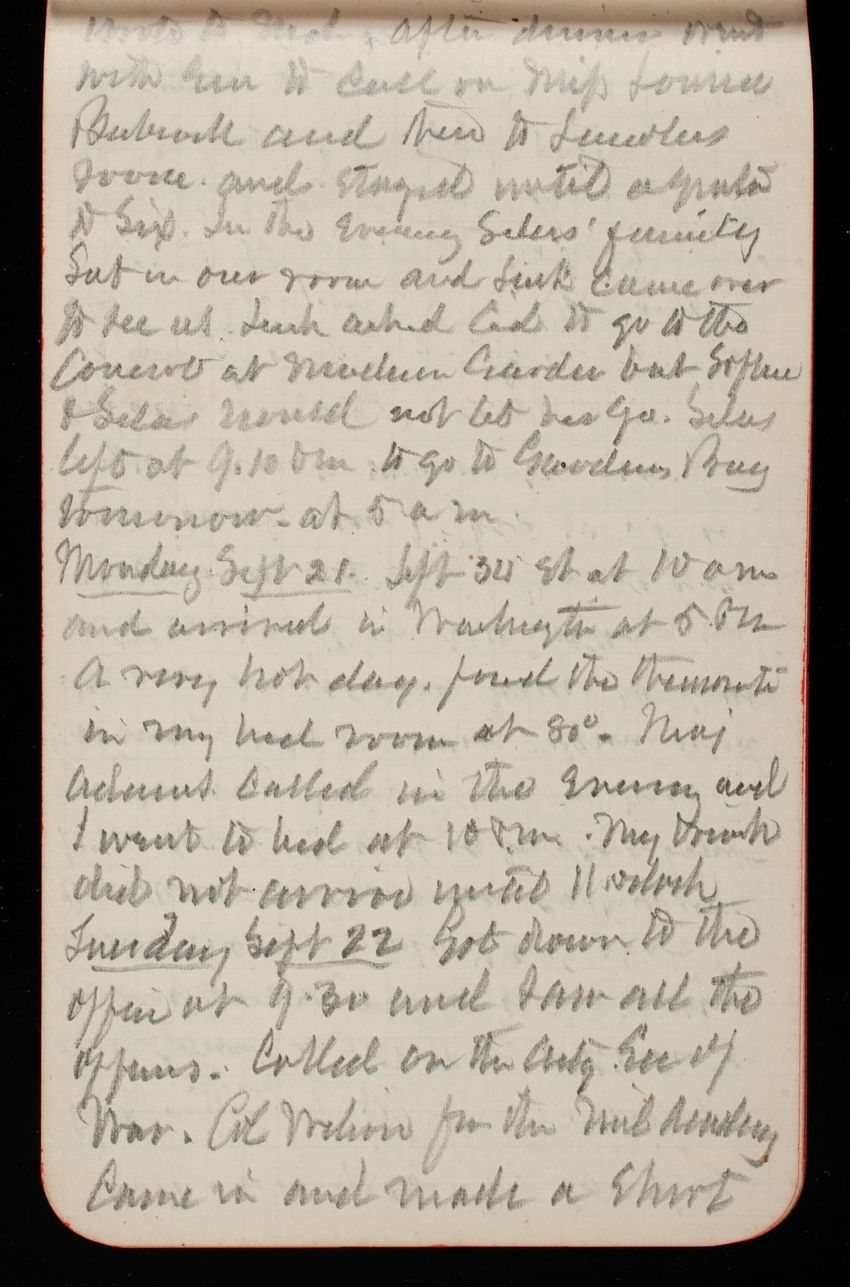 wrote to         after dinner went
with Gen to call on Miss Louise
Babcock and then to
room. and stayed until a quarter
to Six. In the Evening Silas' family
Sat in our room and Luk came over
to see us. Luk asked Cad to go to the
Concert at Madison Garden but Sophie
& Silas would not let her go. Silas
left at 9.10 Pm. to go to       Bay
tomorrow. at 5 a m.
Monday Sept 21. Left 34 St at 10 am
and arrived in Washington at 5 Pm
A very hot day. found the
in my bed room at 80°. Maj
Adams called in the Evening and
I went to bed at 10 Pm. My trunk
did not arrive until 11. oclock
Tuesday Sept 22 Got down to the
office at 9.30 and saw all the
officers. Called on the Actg Sec of
War. Col Wilson from the Mil Academy
Came in and made a Short